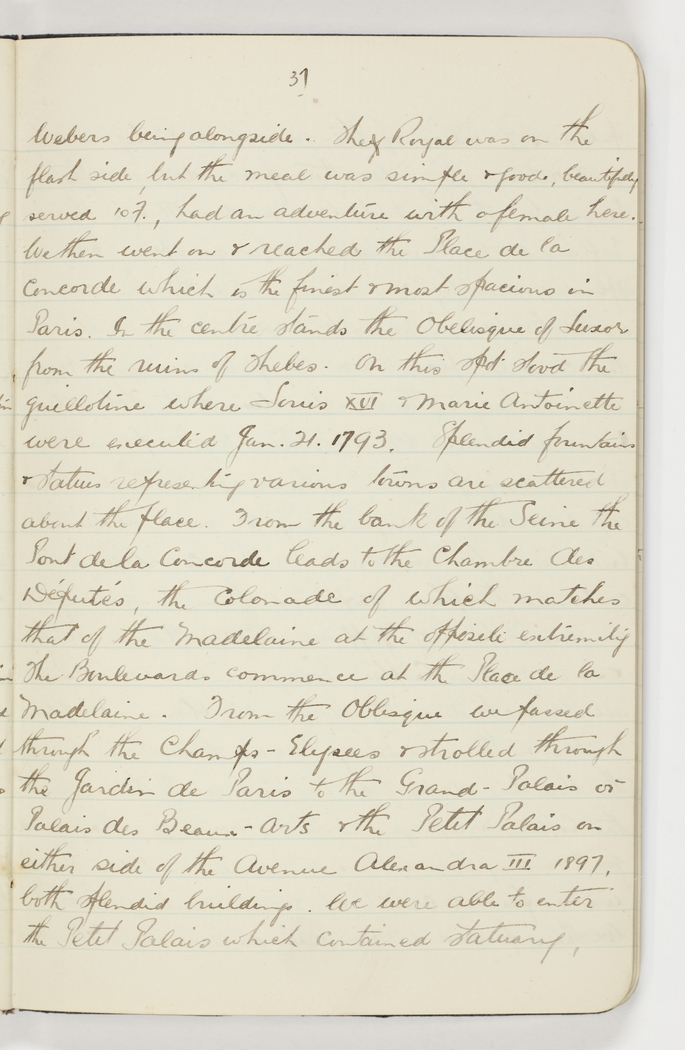 37
Webers being alongside. The Royal was on the
flash side, but the meal was simple & good, beautifully
served 10f., had an adventure with a female here.
We then went on & reached the Place de la
Concorde which is the finest & most spacious in
Paris. In the centre stands the Obelisque of Luxor
from the ruins of Thebes. On this spot stood the
guillotine where Louis XVI & Marie Antoinette
were executed Jan. 21. 1793. Splendid fountains
& statues representing various towns are scattered
about the place. From the bank of the Seine the
Pont de la Concorde leads to the Chambre des
Députés, the Colonade of which matches
that of the Madelaine at the opposite extremity
The Boulevards commence at th Place de la
Madelaine. From the Oblisque we passed
through the Champs-Elysees & strolled through
the Jardin de Paris to the Grand-Palais or
Palais des Beaux-Arts & the Petit Palais on
either side of the Avenue Alexandra III 1897,
both splendid buildings. We were able to enter
the Petit Palais which contained statuary,